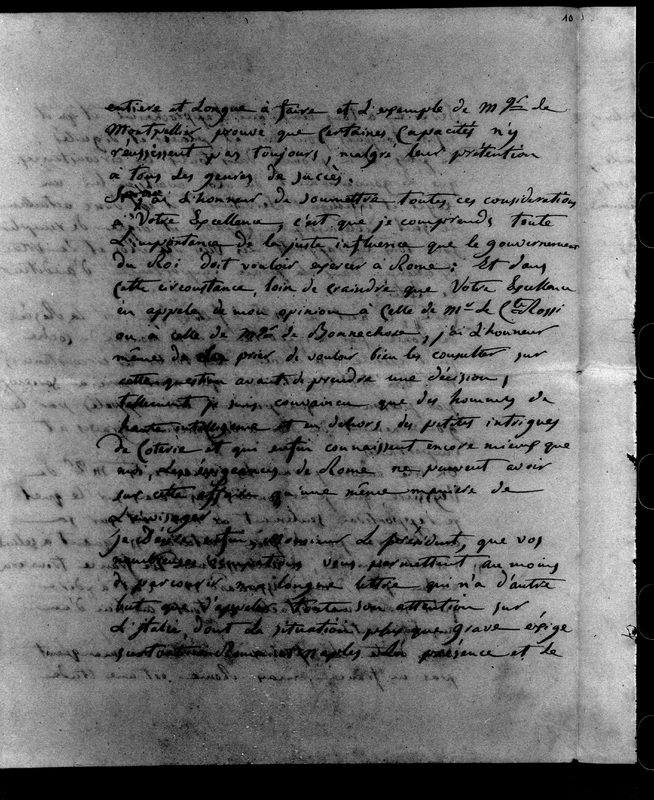 10
entiere et longue à faire et l'exemple de Mgr de
Montpellier prouve que certaines capacités n'y
réussissent pas toujours, malgré leur prétention
à tous les genres de succès.
Si j'ai l'honneur de soumettre toutes ces considérations
à Votre Excellence, c'est que je comprends toute
l'importance de la juste influence que le gouvernement
du Roi doit vouloir exercer à Rome; Et dans
cette circonstance, loin de craindre que Votre Excellence
en appele de mon opinion à celle de Mr le Cte Rossi
ou à celle de Mgr de Bonnechose, j'ai l'honneur
même de prier de vouloir bien les consulter sur
cette question avant de prendre une décision,
tellement je suis convaincu que des hommes de
haute intelligence et en dehors des petites intrigues
de Coterie et qui enfin connaissent encore mieux que
moi, les exigeances de Rome ne peuvent avoir
sur cette affaire qu'une même manière de
l'envisager.
Je désire enfin, Monsieur Le président, que vos
nombreuses occupations vous permettent au moins
de parcourir ma longue lettre qui n'a d'autre
but que d'appeler toute son attention sur
l'Italie, dont la situation plus que grave éxige
surtout à Rome et Naples la présence et le